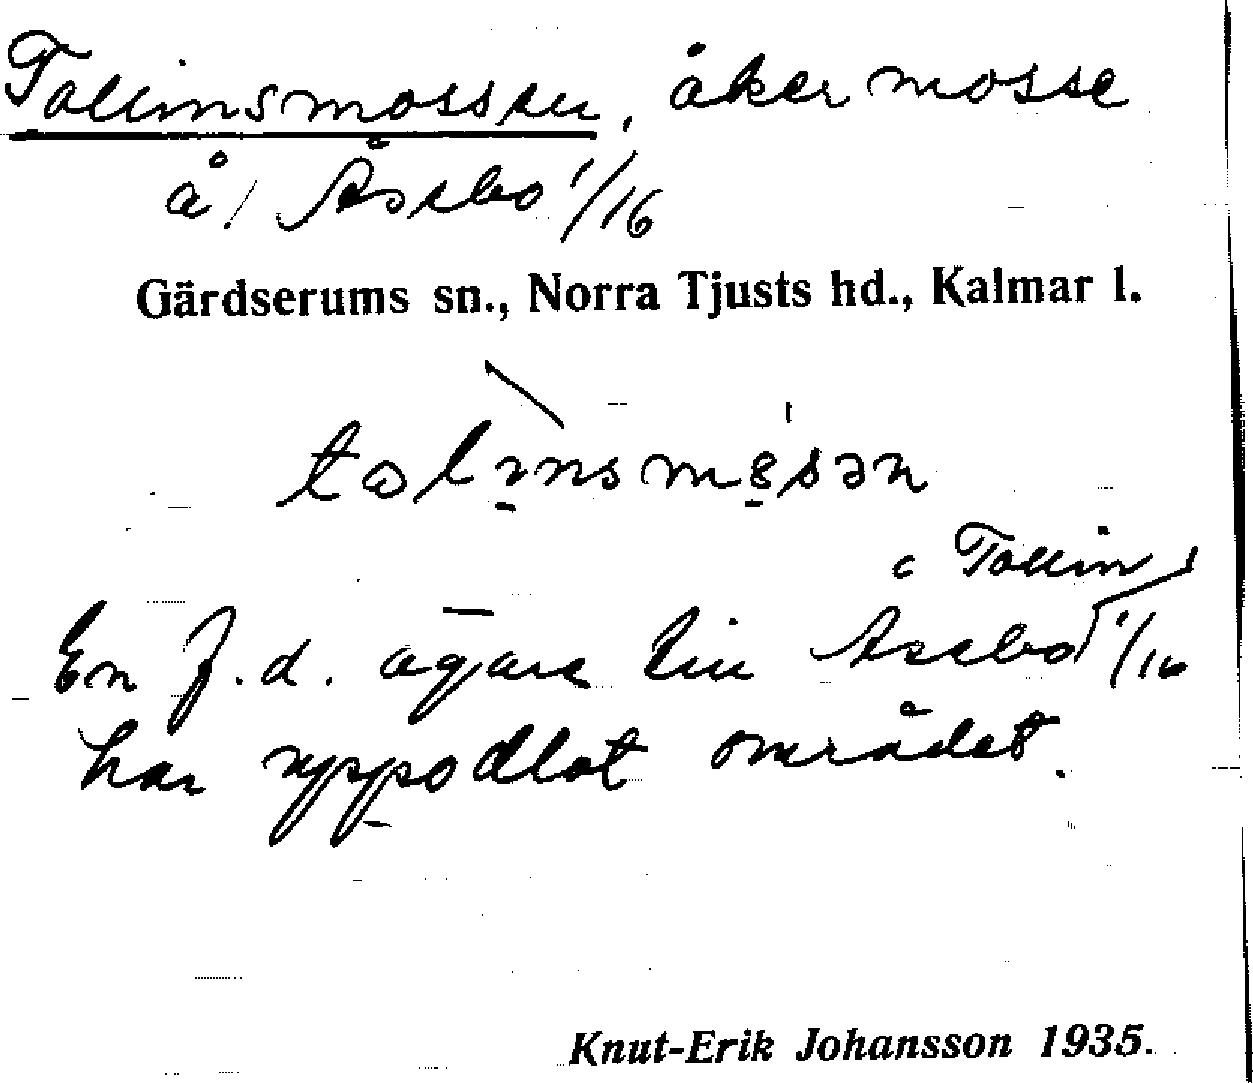 Tallinsmossen, åkermosse
å/ Åsebo 1/16
Gärdserums sn., Norra Tjusts hd., Kalmar l.
Tallin
En f.d. ägare till Åsebo 1/16
har uppodlat området.
Knut-Erik Johansson 1935.